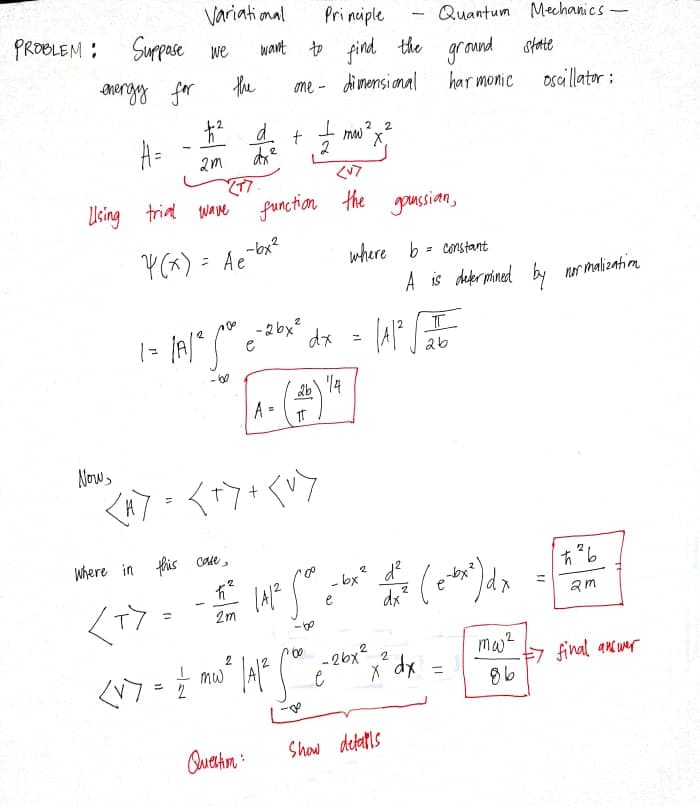 Variational Principle - Quantum Mechanics -
PROBLEM: Suppose we want to find the ground state
energy for the one-dimensional harmonic oscillator:
H = - ħ²/2m d/dx² + 1/2 mω²x²
<T> <V>
Using trial wave function the gaussian,
Ψ(x) = Ae^(-bx²) where b = constant
A is determined by normalization
1 = |A|² ∫_{-∞}^{∞} e^(-2bx²) dx = |A|² √(π/2b)
A = (2b/π)^(1/4)
Now,
<H> = <T> + <V>
where in this case,
<T> = - ħ²/2m |A|² ∫_{-∞}^{∞} e^(-bx²) d²/dx² (e^(-bx²)) dx = ħ²b/2m
<V> = 1/2 mω² |A|² ∫_{-∞}^{∞} e^(-2bx²) x² dx = mω²/8b ⇒ final answer
Question: Show details